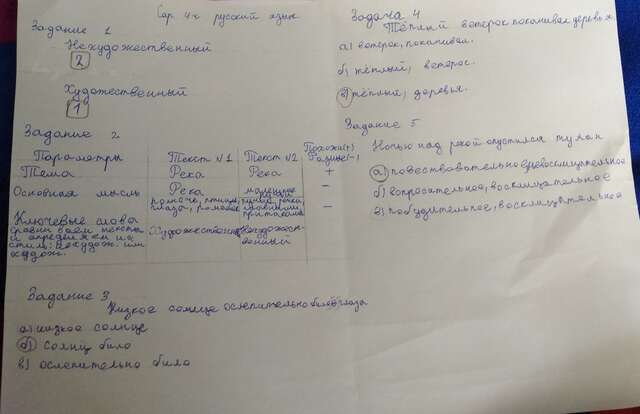 Сар 4-х русский язык
Задание 1
Нехудожественный
2
Художественный
1
Задание 2
Параметры
Текст №1
Текст №2
Похожи(+)
Разные(-)
Тема
Река
Река
+
Основная мысль
Река
-
Ключевые слова
глаза, ромашки
-
стиль: нехудож. или
худож.
Художественный
Нехудожест-
венный
Задание 3
Низкое солнце ослепительно било в глаза
а) низкое солнце
б) солнце било
в) ослепительно било
Задача 4
Тёплый ветерок покачивал деревья.
а) ветерок, покачивал.
б) тёплый, ветерок.
в) тёплый, деревья.
Задание 5
Ночью над рекой опустился туман
а) повествовательное, невосклицательное
б) вопросительное, восклицательное
в) побудительное, восклицательное